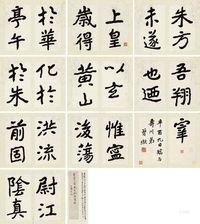 朱方
未遂
上皇
歲得
於華
亭午
吾翔
也迺
以玄
黃山
化於
於朱
宰
惟寧
後蕩
洪流
前固
尉江
陰真